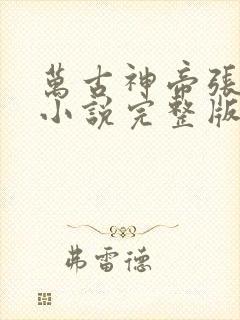 萬古神帝張
小說完整版
弗雷德